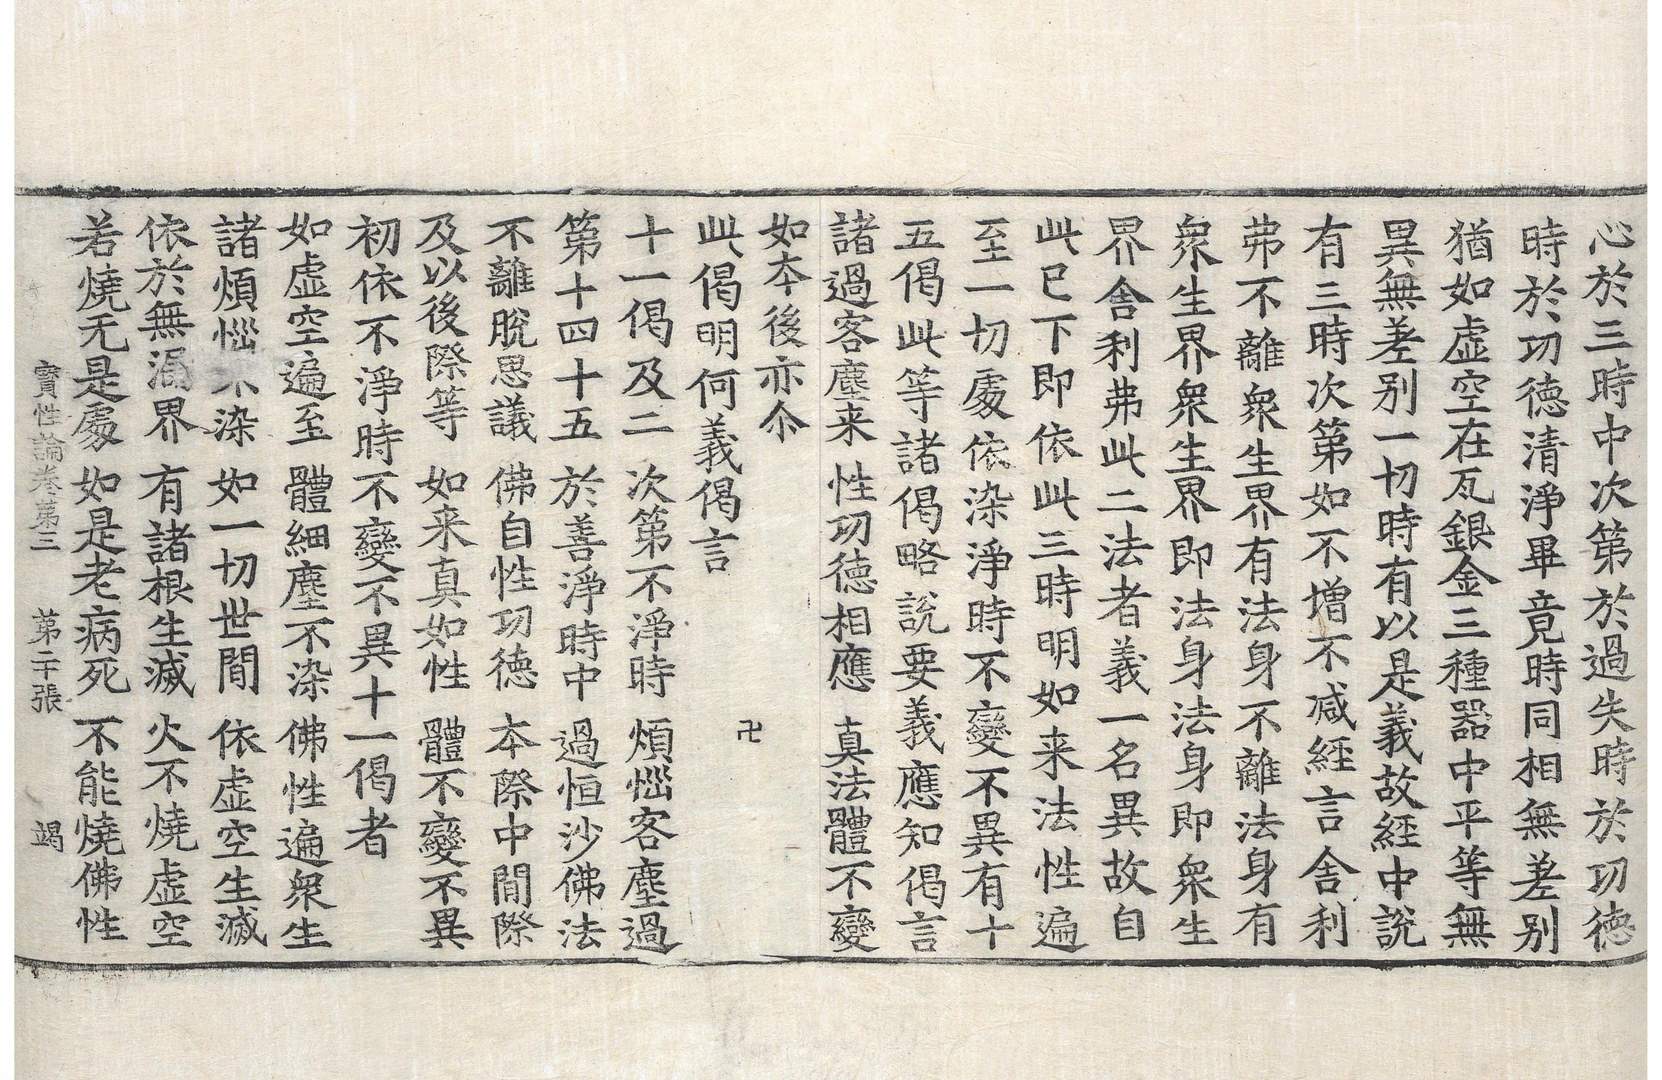 心於三時中次第於過失時於功德
時於功德清淨畢竟時同相無差别
猶如虛空在瓦銀金三種器中平等無
異無差别一切時有以是義故經中說
有三時次第如不增不减經言舍利
弗不離衆生界有法身不離法身有
衆生界衆生界即法身法身即衆生
界舍利弗此二法者義一名異故自
此已下即依此三時明如来法性遍
至一切處依染淨時不變不異有十
五偈此等諸偈略說要義應知偈言
諸過客塵来 性功德相應 真法體不變
如本後亦尒
卍
此偈明何義偈言
十一偈及二 次第不淨時 煩惱客塵過
第十四十五 於善淨時中 過恒沙佛法
不離脫思議 佛自性功德 本際中間際
及以後際等 如来真如性 體不變不異
初依不淨時不變不異十一偈者
如虛空遍至 體細塵不染 佛性遍衆生
諸煩惱不染 如一切世間 依虛空生滅
依於無漏界 有諸根生滅 火不燒虛空
若燒无是處 如是老病死 不能燒佛性
寶性論卷第三 第二十張 竭